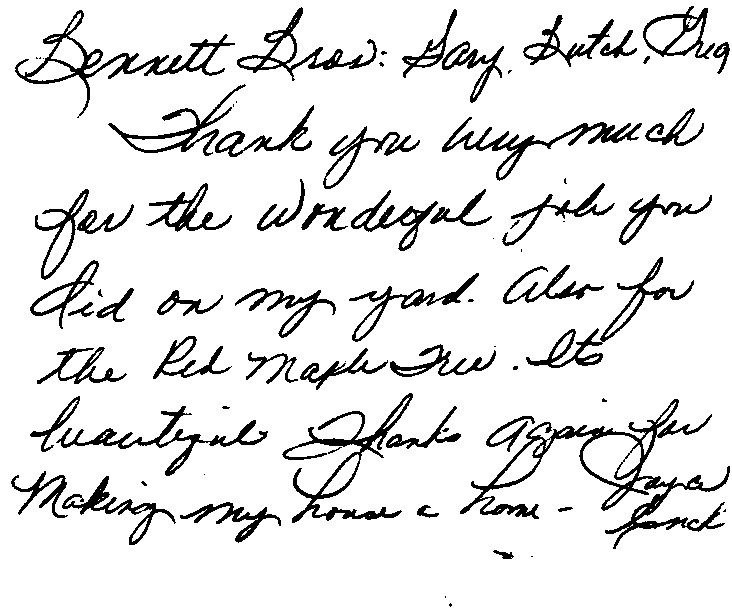 Bennett Bros: Gary, Butch, Greg
Thank you very much
for the wonderful job you
did on my yard. Also for
the Red Maple Tree. Its
beautiful Thanks again for
Making my house a home -